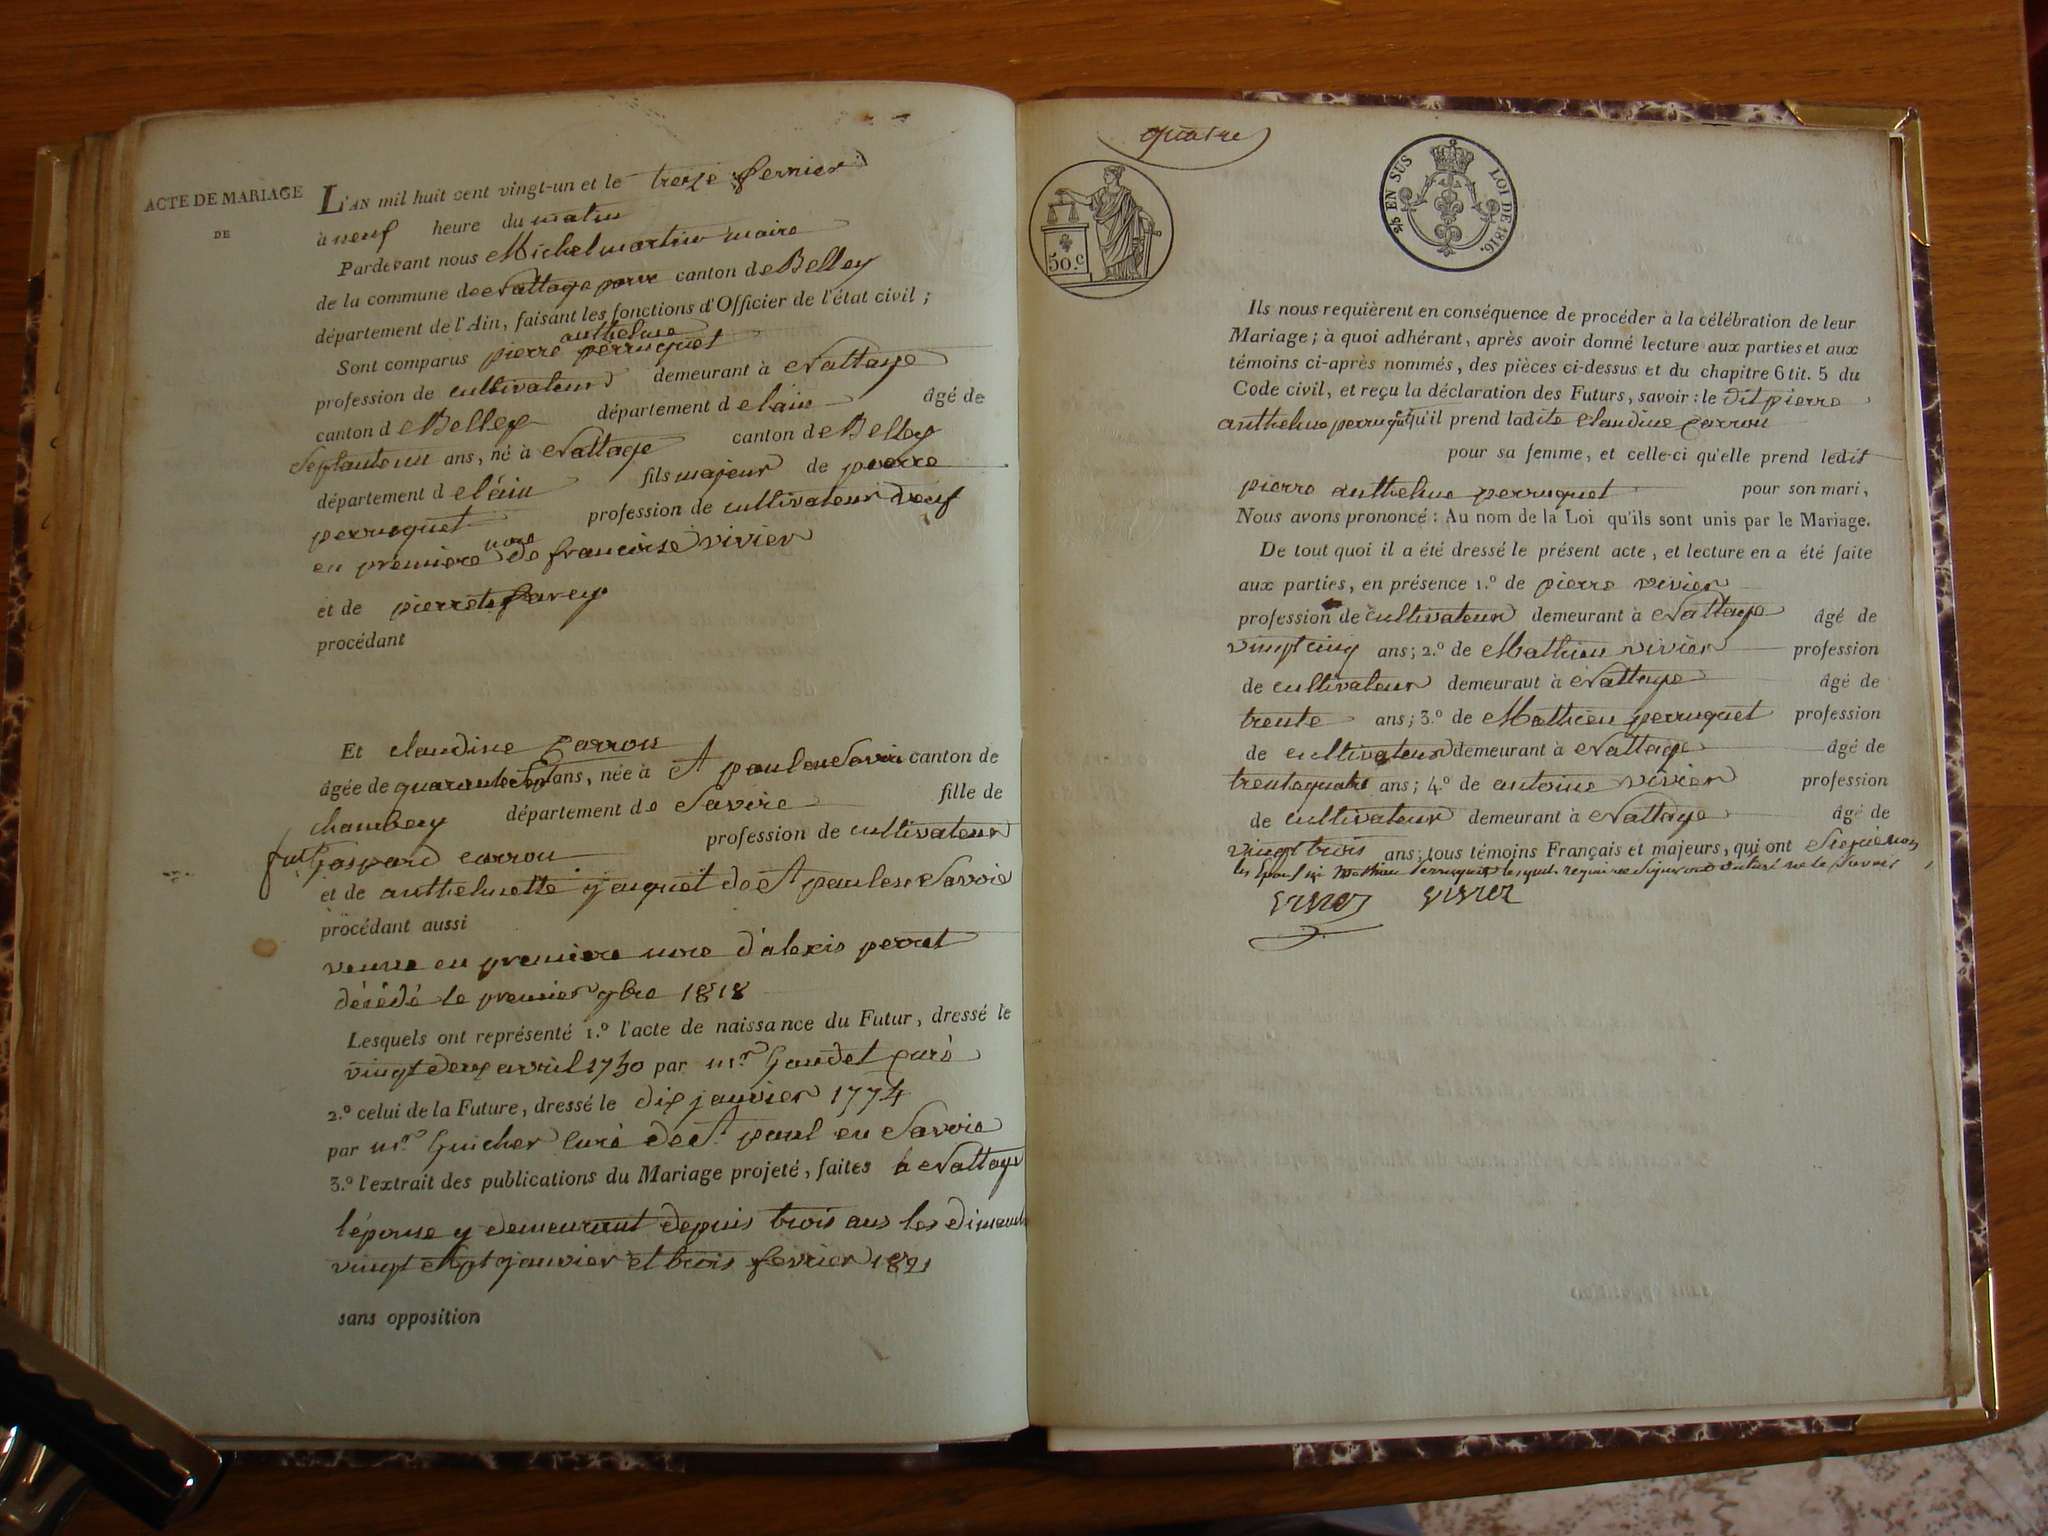 ACTE DE MARIAGE
DE
L'AN mil huit cent vingt-un et le treize fevrier
à neuf heure du matin
Pardevant nous Michel martin maire
de la commune de Nattage parve canton de Belley
département de l'Ain, faisant les fonctions d'Officier de l'état civil ;
anthelme
Sont comparus pierre perruquet
profession de cultivateur demeurant à Nattage
canton d e Belley département d e l'ain âgé de
Septante un ans, né à Nattage canton de Belley
département d e l'ain fils majeur de pierre
perruquet profession de cultivateur veuf
en premiere noce de francoise vivier
et de pierrette favey
procédant
Et claudine Carron
âgée de quarante sept ans, née à St paul en Savoie canton de
chambery département de Savoie fille de
fut Gaspard carron profession de cultivateur
et de anthelmette jaquet de St paul en Savoie
procédant aussi
veuve en premiere noce d'alexis perret
décédé le premier 9bre 1818
Lesquels ont représenté 1.º l'acte de naissance du Futur, dressé le
vingt deux avril 1750 par mr. Gaudet curé
2.º celui de la Future, dressé le dix janvier 1774
par mr. Guicher curé de St paul en Savoie
3.º l'extrait des publications du Mariage projeté, faites à Nattage
l'épouse y demeurant depuis trois ans les dimanche
vingt sept janvier et trois fevrier 1821
sans opposition
quatre
50.c
EN SUS LOI DE 1816.
Ils nous requièrent en conséquence de procéder à la célébration de leur
Mariage ; à quoi adhérant, après avoir donné lecture aux parties et aux
témoins ci-après nommés, des pièces ci-dessus et du chapitre 6 tit. 5 du
Code civil, et reçu la déclaration des Futurs, savoir : le dit pierre
anthelme perruquet qu'il prend ladite claudine carron
pour sa femme, et celle-ci qu'elle prend ledit
pierre anthelme perruquet pour son mari,
Nous avons prononcé : Au nom de la Loi qu'ils sont unis par le Mariage.
De tout quoi il a été dressé le présent acte, et lecture en a été faite
aux parties, en présence 1.º de pierre vivier
profession de cultivateur demeurant à Nattage âgé de
vingt cinq ans ; 2.º de Mathieu vivier profession
de cultivateur demeurant à Nattage âgé de
trente ans ; 3.º de Mathieu perruquet profession
de cultivateur demeurant à Nattage âgé de
trente quatre ans ; 4.º de antoine vivier profession
de cultivateur demeurant à Nattage âgé de
vingt trois ans ; tous témoins Français et majeurs, qui ont Signé non
les Epoux ni Mathieu Perruquet lesquels requis de signer ont déclaré ne le savoir
vivier vivier